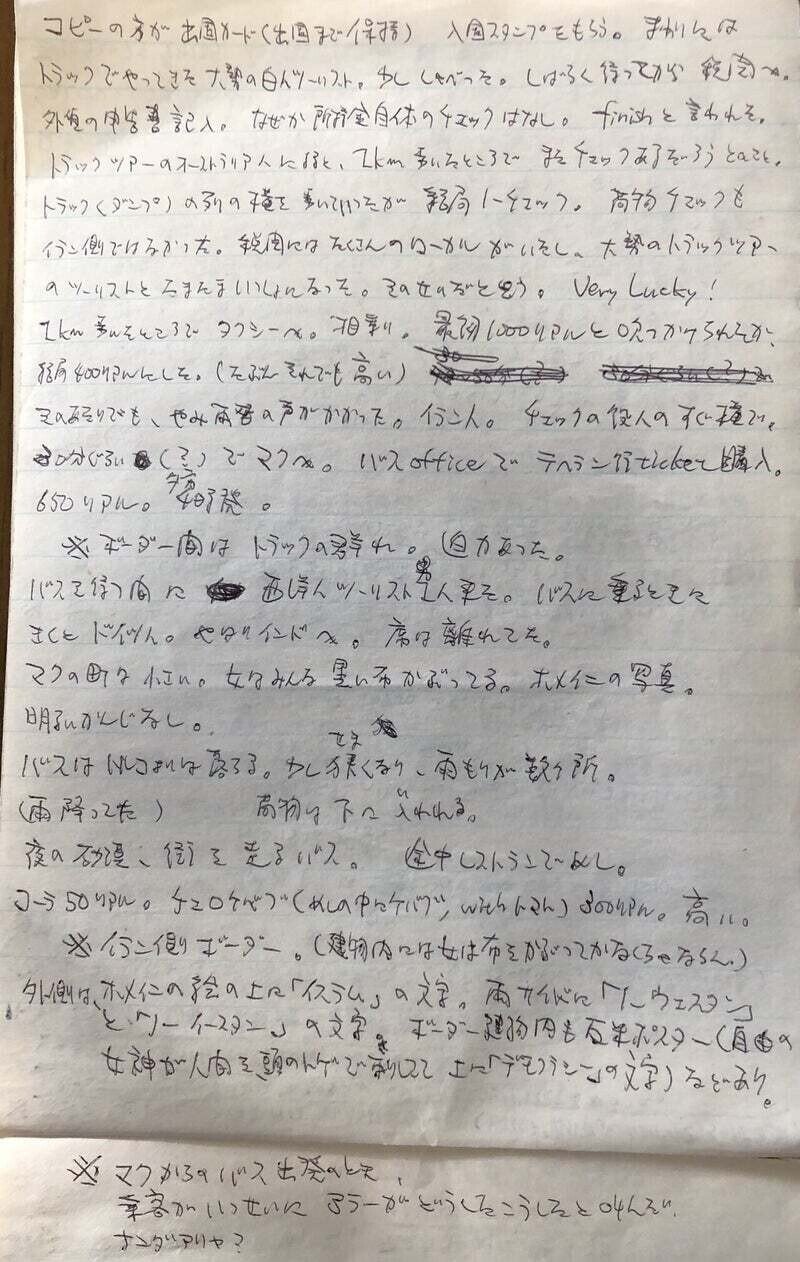 コピーの方が出国カード(出国まで保持) 入国スタンプをもらう。まわりには
トラックでやってきた大勢の白人ツーリスト。少ししゃべった。しばらく待ってから税関へ。
外貨の申告書記入。なぜか所持金自体のチェックはなし。finishと言われた。
トラックツアーのオーストラリア人によると、2km歩いたところでまたチェックあるだろうとのこと。
トラック(ダンプ)の列の横を歩いていったが結局ノーチェック。荷物チェックも
イラン側ではなかった。税関にはたくさんのローカルがいたし、大勢のトラックツアー
のツーリストとたまたまいっしょになった。そのせいだと思う。Very Lucky!
2km歩いたところでタクシーへ。相乗り。最初1000リアルと吹っかけられたが、
結局400リアルにした。(たぶんそれでも高い)
そのあたりでも、やみ両替の声がかかった。イラン人。チェックの役人のすぐ横で。
30分ぐらい(?)でマクへ。バスofficeでテヘラン行ticket購入。
650リアル。夕方 発。
※ボーダー間はトラックの群れ。迫力あった。
バスを待つ間に西洋人ツーリスト男 人来た。バスに乗るときに
きくとドイツ人。やはりインドへ。席は離れてた。
マクの町は小さい。女はみんな黒い布かぶってる。ホメイニの写真。
明るいかんじなし。
バスはトルコよりは落ちる。少しせまくなり、雨もりが数ヶ所。
(雨降ってた) 荷物は下に入れれる。
夜の砂漠、街を走るバス。途中レストランでめし。
コーラ50リアル。チェロケバブ(めしの中にケバブ, withトマト)300リアル。高い。
※イラン側ボーダー。(建物内には女は布をかぶってかなくちゃならん。)
外側は、ホメイニの絵の上に「イスラム」の文字。両サイドに「ノーウェスタン」
と「ノーイースタン」の文字。ボーダー建物内も反米ポスター(自由の
女神が人間を頭のトゲで刺してて上に「デモクラシー」の文字)などあり。
※マクからのバス出発のとき、
乗客がいっせいにアラーがどうしたこうしたと叫んだ。
ナンダアリャ?